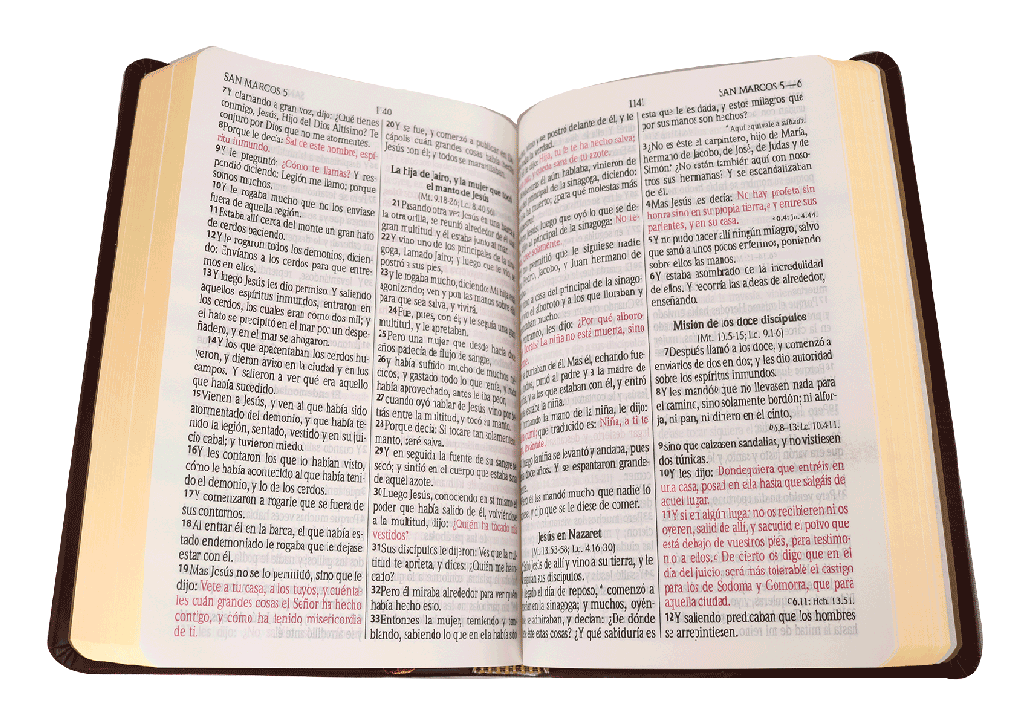 SAN MARCOS 5
1140
7Y clamando a gran voz, dijo: ¿Qué tienes
conmigo, Jesús, Hijo del Dios Altísimo? Te
conjuro por Dios que no me atormentes.
8Porque le decía: Sal de este hombre, espí-
ritu inmundo.
9Y le preguntó: ¿Cómo te llamas? Y res-
pondió diciendo: Legión me llamo; porque
somos muchos.
10Y le rogaba mucho que no los enviase
fuera de aquella región.
11Estaba allí cerca del monte un gran hato
de cerdos paciendo.
12Y le rogaron todos los demonios, dicien-
do: Envíanos a los cerdos para que entre-
mos en ellos.
13Y luego Jesús les dio permiso. Y saliendo
aquellos espíritus inmundos, entraron en
los cerdos, los cuales eran como dos mil; y
el hato se precipitó en el mar por un despe-
ñadero, y en el mar se ahogaron.
14Y los que apacentaban los cerdos hu-
yeron, y dieron aviso en la ciudad y en los
campos. Y salieron a ver qué era aquello
que había sucedido.
15Vienen a Jesús, y ven al que había sido
atormentado del demonio, y que había te-
nido la legión, sentado, vestido y en su jui-
cio cabal; y tuvieron miedo.
16Y les contaron los que lo habían visto,
cómo le había acontecido al que había teni-
do el demonio, y lo de los cerdos.
17Y comenzaron a rogarle que se fuera de
sus contornos.
18Al entrar él en la barca, el que había es-
tado endemoniado le rogaba que le dejase
estar con él.
19Mas Jesús no se lo permitió, sino que le
dijo: Vete a tu casa, a los tuyos, y cuéntales
les cuán grandes cosas el Señor ha hecho
contigo, y cómo ha tenido misericordia
de ti.
20Y se fue, y comenzó a publicar en De-
cápolis cuán grandes cosas había hecho
Jesús con él; y todos se maravillaban.
La hija de Jairo, y la mujer que tocó
el manto de Jesús
(Mt. 9.18-26; Lc. 8.40-56)
21Pasando otra vez Jesús en una barca
a la otra orilla, se reunió alrededor de él una
gran multitud; y él estaba junto al mar.
22Y vino uno de los principales de la sina-
goga, llamado Jairo; y luego que le vio, se
postró a sus pies,
23y le rogaba mucho, diciendo: Mi hija está
agonizando; ven y pon las manos sobre ella
para que sea salva, y vivirá.
24Fue, pues, con él; y le seguía una gran
multitud, y le apretaban.
25Pero una mujer que desde hacía doce
años padecía de flujo de sangre,
26y había sufrido mucho de muchos mé-
dicos, y gastado todo lo que tenía, y nada
había aprovechado, antes le iba peor,
27cuando oyó hablar de Jesús, vino por de-
trás entre la multitud, y tocó su manto.
28Porque decía: Si tocare tan solamente su
manto, seré salva.
29Y en seguida la fuente de su sangre se
secó; y sintió en el cuerpo que estaba sana
de aquel azote.
30Luego Jesús, conociendo en sí mismo el
poder que había salido de él, volviéndose
a la multitud, dijo: ¿Quién ha tocado mis
vestidos?
31Sus discípulos le dijeron: Ves que la mul-
titud te aprieta, y dices: ¿Quién me ha to-
cado?
32Pero él miraba alrededor para ver quién
había hecho esto.
33Entonces la mujer, temiendo y tem-
blando, sabiendo lo que en ella había sido
1141
SAN MARCOS 5—6
y se postró delante de él, y le
verdad.
Hija, tu fe te ha hecho salva;
y queda sana de tu azote.
aún hablaba, vinieron de
principal de la sinagoga, diciendo:
muerto; ¿para qué molestas más
luego que oyó lo que se de-
al principal de la sinagoga: No te-
solamente.
permitió que le siguiese nadie
Pedro, Jacobo, y Juan hermano de
a casa del principal de la sinago-
el alboroto y a los que lloraban y
mucho.
les dijo: ¿Por qué alboro-
La niña no está muerta, sino
burlaban de él. Mas él, echando fue-
todos, tomó al padre y a la madre de
y a los que estaban con él, y entró
estaba la niña.
tomando la mano de la niña, le dijo:
que traducido es: Niña, a ti te
levántate.
luego la niña se levantó y andaba, pues
doce años. Y se espantaron grande-
les mandó mucho que nadie lo
y dijo que se le diese de comer.
Jesús en Nazaret
(Mt. 13.53-58; Lc. 4.16-30)
Jesús de allí y vino a su tierra, y le
sus discípulos.
llegado el día de reposo,* comenzó a
en la sinagoga; y muchos, oyén-
se admiraban, y decían: ¿De dónde
éste estas cosas? ¿Y qué sabiduría es
esta que le es dada, y estos milagros que
por sus manos son hechos?
*Aquí equivale a sábado.
3¿No es éste el carpintero, hijo de María,
hermano de Jacobo, de José, de Judas y de
Simón? ¿No están también aquí con noso-
tros sus hermanas? Y se escandalizaban
de él.
4Mas Jesús les decía: No hay profeta sin
honra sino en su propia tierra,a y entre sus
parientes, y en su casa.
a6.4: Jn. 4.44.
5Y no pudo hacer allí ningún milagro, salvo
que sanó a unos pocos enfermos, poniendo
sobre ellos las manos.
6Y estaba asombrado de la incredulidad
de ellos. Y recorría las aldeas de alrededor,
enseñando.
Misión de los doce discípulos
(Mt. 10.5-15; Lc. 9.1-6)
7Después llamó a los doce, y comenzó a
enviarlos de dos en dos; y les dio autoridad
sobre los espíritus inmundos.
8Y les mandó que no llevasen nada para
el camino, sino solamente bordón; ni alfor-
ja, ni pan, ni dinero en el cinto,
b6.8-13: Lc. 10.4-11.
9sino que calzasen sandalias, y no vistiesen
dos túnicas.
10Y les dijo: Dondequiera que entréis en
una casa, posad en ella hasta que salgáis de
aquel lugar.
11Y si en algún lugar no os recibieren ni os
oyeren, salid de allí, y sacudid el polvo que
está debajo de vuestros pies, para testimo-
nio a ellos.c De cierto os digo que en el
día del juicio, será más tolerable el castigo
para los de Sodoma y Gomorra, que para
aquella ciudad.
c6.11: Hch. 13.51.
12Y saliendo, predicaban que los hombres
se arrepintiesen.